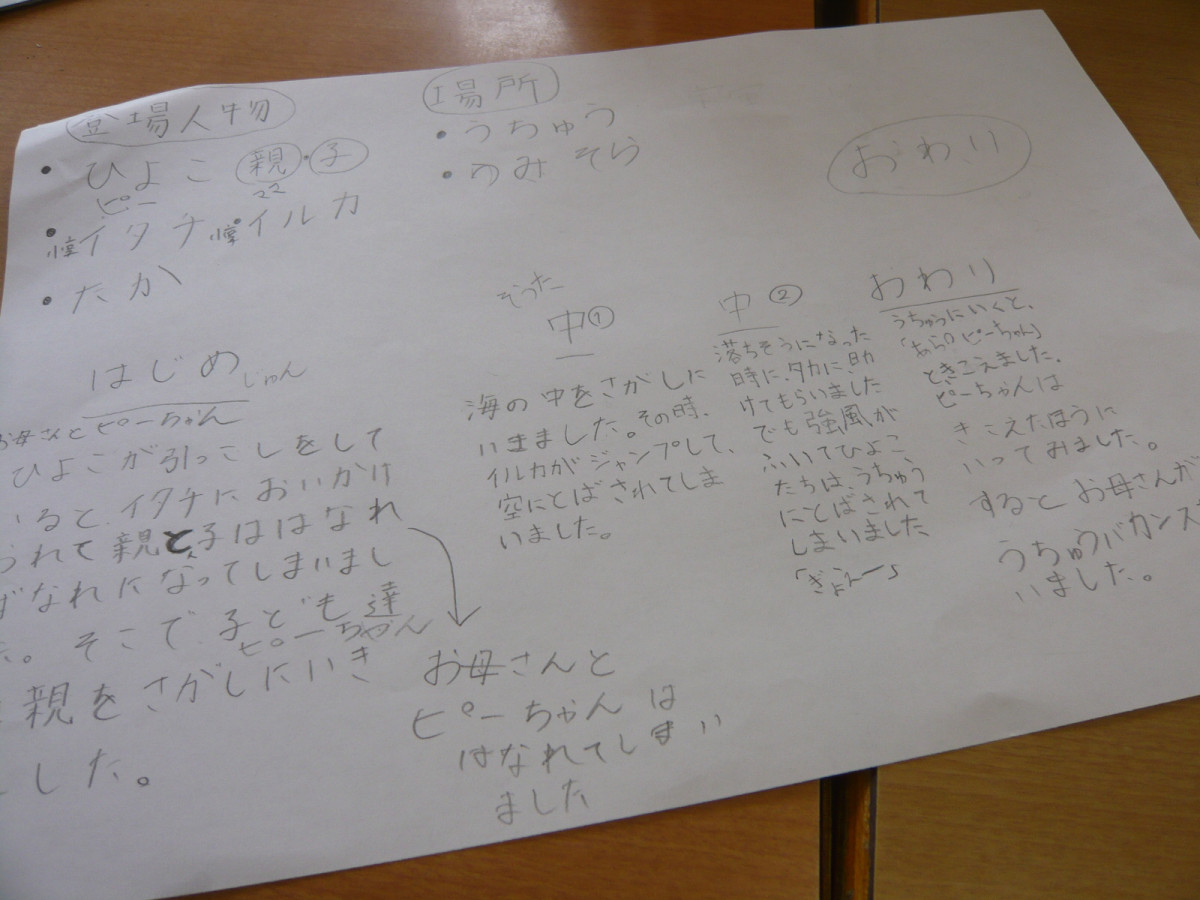 登場人物
・ひよこ 親・子
ピー ママ
・イタチ イルカ
・たか
場所
・うちゅう
・うみ そら
おわり
はじめ
じゅん
お母さんとピーちゃん
ひよこが引っこしをして
いると、イタチにおいかけ
られて親と子ははなれ
ばなれになってしまいまし
た。そこで、子ども達
ピーちゃん
は親をさがしにいき
ました。
お母さんと
ピーちゃんは
はなれてしまい
ました
中①
海の中をさがしに
いきました。その時、
イルカがジャンプして、
空にとばされてしま
いました。
中②
落ちそうになった
時に、タカに助
けてもらいました
でも強風が
ふいてひよこ
たちは、うちゅう
にとばされて
しまいました
「ぎょえー」
おわり
うちゅうにいくと、
「あら!ピーちゃん」
ときこえました。
ピーちゃんは
きこえたほうに
いってみました。
するとお母さんが
うちゅうバカンス
いました。